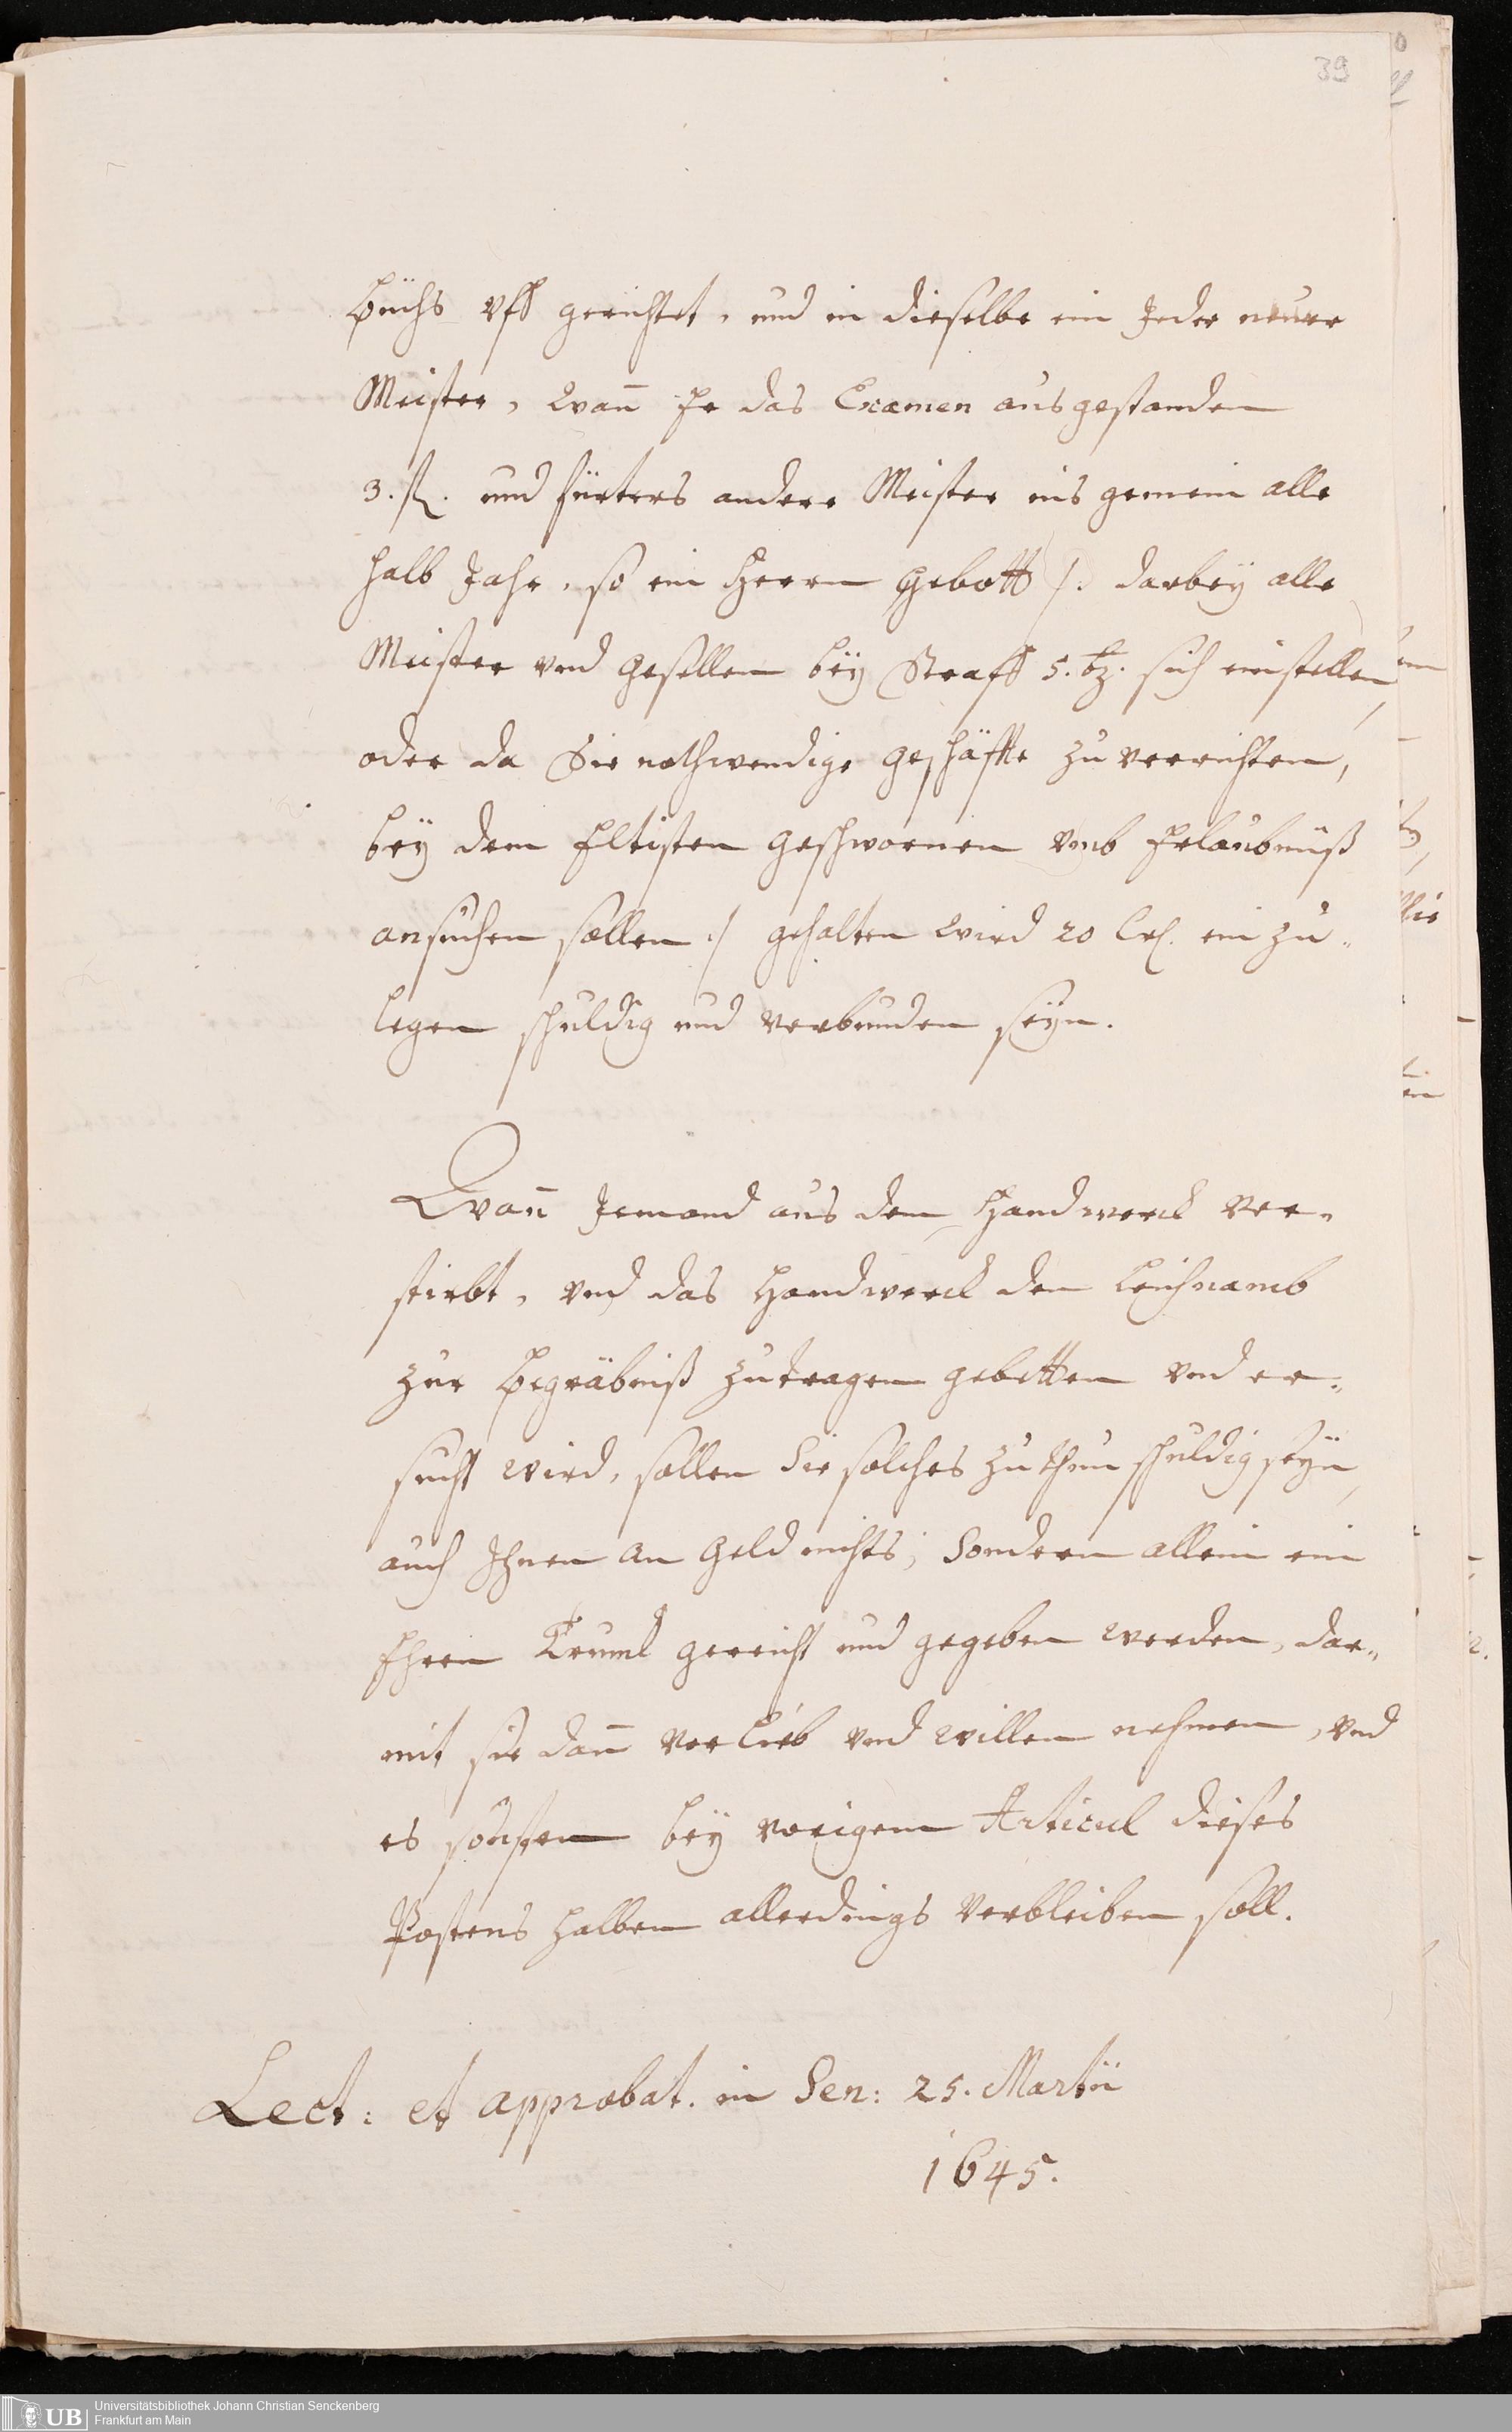 39
Büchs vff gerichtet, und in dieselbe ein Jeder neuer
Meister, Wan̄ Er das Examen ausgestanden
3. fl. und fürters andere Meister ins gemein alle
halb Jahr, so ein Herrn Gebott /: darbeÿ alle
Meister vnd Gesellen beÿ Straff 5. bz. sich einstellen,
oder da Sie nothwendige geschäffte zu verrichten,
beÿ dem Eltisten Geschwornen vmb Erlaubnüß
ansuchen sollen :/ gehalten wird 20 Cr. ein zu„
legen schuldig und verbunden seÿn.
Wan̄ Jemand aus dem Handwerck ver„
stirbt, vnd das Handwerck den Leichnamb
zur Begräbniß zutragen gebetten vnd er„
sucht wird, sollen Sie solches zu thun schuldig seÿn,
auch Ihnen an Geld nichts, Sondern allein ein
Ehren Trunk gereicht und gegeben werden, dar„
mit sie dan̄ ver Lieb vnd willen nehmen, vnd
es sonsten beÿ vorigem Articul dieses
Postens halben allerdings Verbleiben soll.
Lect: et approbat. in Sen: 25. Martii
1645.
UB Universitätsbibliothek Johann Christian Senckenberg
Frankfurt am Main